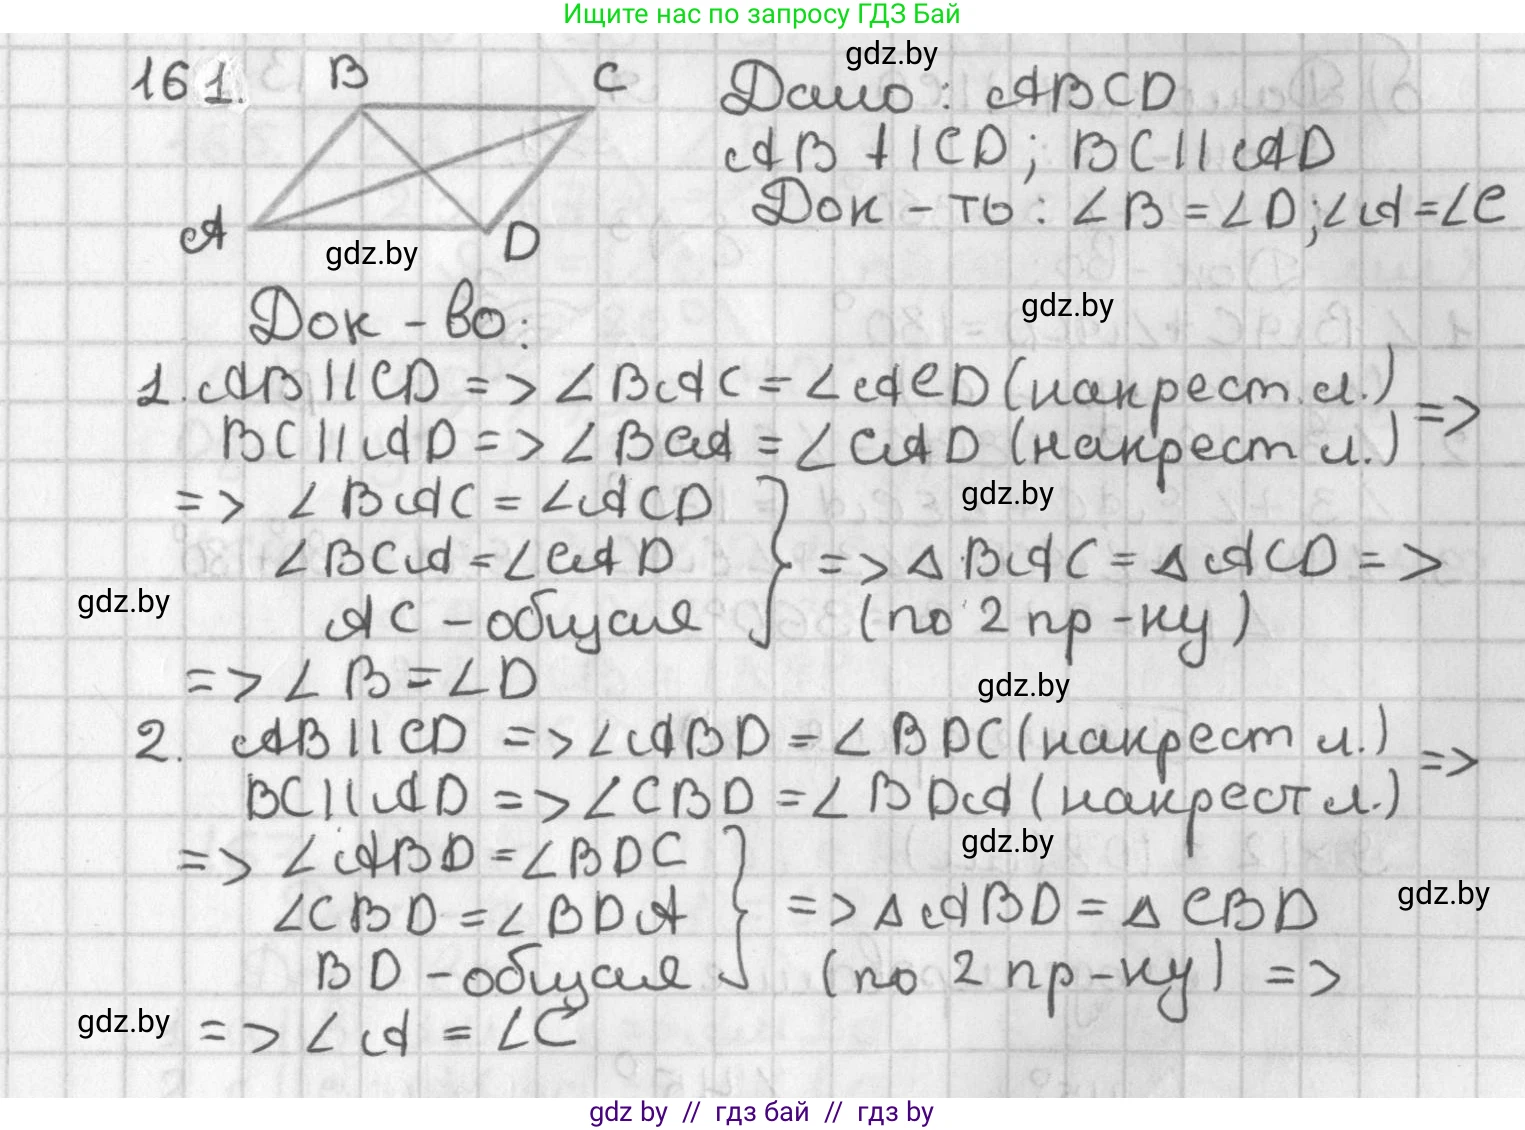 Ищите нас по запросу ГДЗ Бай
gdz.by
161.
B
C
A
D
Дано: ABCD
AB ∥ CD; BC ∥ AD
Док-ть: ∠B = ∠D; ∠A = ∠C
gdz.by
gdz.by
Док-во:
1. AB ∥ CD => ∠BAC = ∠ACD (накрест. л.)
BC ∥ AD => ∠BCA = ∠CAD (накрест л.) =>
=> ∠BAC = ∠ACD
gdz.by
∠BCA = ∠CAD } => △BAC = △ACD =>
gdz.by
AC - общая (по 2 пр-ку)
=> ∠B = ∠D
gdz.by
2. AB ∥ CD => ∠ABD = ∠BDC (накрест л.) =>
BC ∥ AD => ∠CBD = ∠BDA (накрест л.)
=> ∠ABD = ∠BDC
gdz.by
gdz.by
∠CBD = ∠BDA } => △ABD = △CBD
BD - общая (по 2 пр-ку) =>
gdz.by
=> ∠A = ∠C
gdz by // гдз бай // гдз by